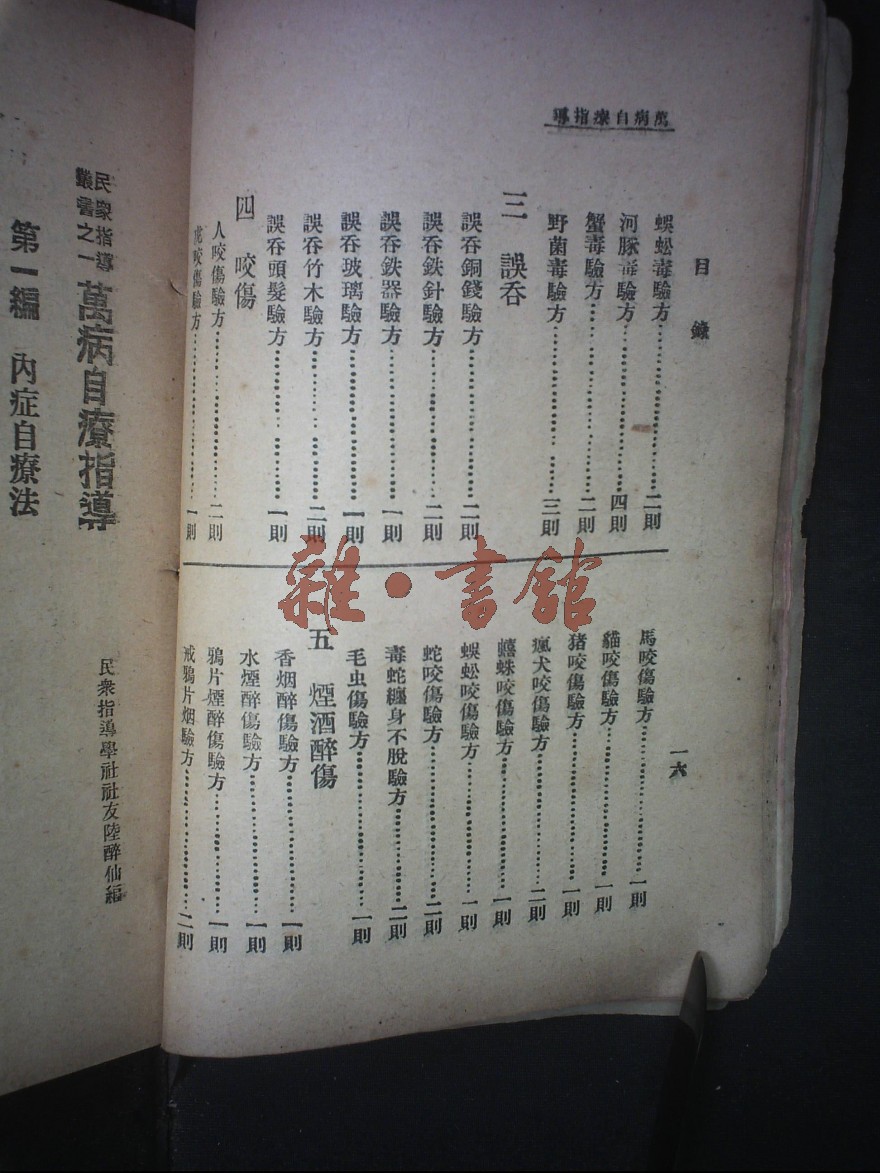 萬病自療指導
目錄
一六
蜈蚣毒驗方…………二則
河豚毒驗方…………四則
蟹毒驗方…………二則
野菌毒驗方…………三則
三 誤呑
誤呑銅錢驗方…………二則
誤呑鉄針驗方…………二則
誤呑鉄器驗方…………一則
誤呑玻璃驗方…………一則
誤呑竹木驗方…………二則
誤呑頭髮驗方…………一則
四 咬傷
人咬傷驗方…………二則
虎咬傷驗方…………一則
馬咬傷驗方…………一則
貓咬傷驗方…………一則
猪咬傷驗方…………一則
瘋犬咬傷驗方…………二則
蟢蛛咬傷驗方…………一則
蜈蚣咬傷驗方…………一則
蛇咬傷驗方…………二則
毒蛇纏身不脫驗方…………二則
毛虫傷驗方…………一則
五 煙酒醉傷
香烟醉傷驗方…………一則
水煙醉傷驗方…………一則
鴉片煙醉傷驗方…………一則
戒鴉片烟驗方…………二則
民衆指導
叢書之一
萬病自療指導
民衆指導學社社友陸醉仙編
第一編 內症自療法
雜·書館